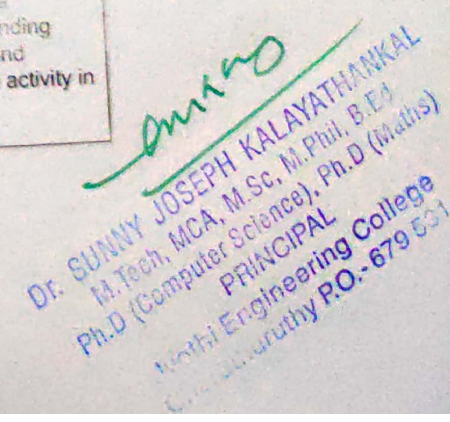 nding
nd
activity in
Dr. SUNNY JOSEPH KALAYATHANKAL
M.Tech, MCA, M.Sc, M.Phil, B.Ed
Ph.D (Computer Science), Ph.D (Maths)
PRINCIPAL
Engineering College
P.O.- 679 531